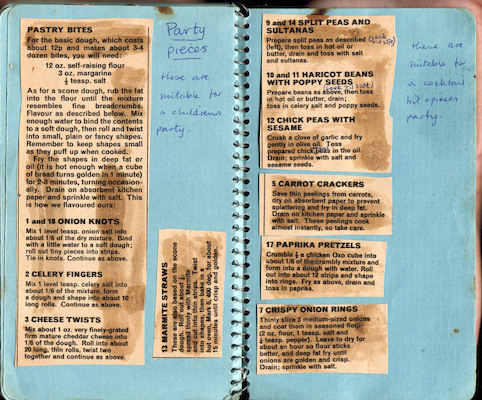 PASTRY BITES
For the basic dough, which costs
about 12p and makes about 3-4
dozen bites, you will need:
12 oz. self-raising flour
3 oz. margarine
½ teasp. salt
As for a scone dough, rub the fat
into the flour until the mixture
resembles fine breadcrumbs.
Flavour as described below. Mix
enough water to bind the contents
to a soft dough, then roll and twist
into small, plain or fancy shapes.
Remember to keep shapes small
as they puff up when cooked.
Fry the shapes in deep fat or
oil (it is hot enough when a cube
of bread turns golden in 1 minute)
for 2-3 minutes, turning occasion-
ally. Drain on absorbent kitchen
paper and sprinkle with salt. This
is how we flavoured ours:
1 and 18 ONION KNOTS
Mix 1 level teasp. onion salt into
about 1/6 of the dry mixture. Bind
with a little water to a soft dough;
roll out tiny pieces into strips.
Tie in knots. Continue as above.
2 CELERY FINGERS
Mix 1 level teasp. celery salt into
about 1/6 of the mixture, form
a dough and shape into about 10
long rolls. Continue as above.
3 CHEESE TWISTS
Mix about 1 oz. very finely-grated
firm mature cheddar cheese into
1/6 of the dough. Roll into about
20 long, thin rolls, twist two
together and continue as above.
Party
pieces
these are
suitable for
a childrens
party.
13 MARMITE STRAWS
These are also based on the scone
dough. Roll out about
spread thinly with Marmite
and cut into thin strips. Twist
into shapes, then bake in a
hot oven, mark 6, 400 deg. for about
15 minutes until crisp and golden.
9 and 14 SPLIT PEAS AND
SULTANAS
Prepare split peas as described
(left), then toss in hot oil or
butter, drain and toss with salt
and sultanas.
10 and 11 HARICOT BEANS
WITH POPPY SEEDS
Prepare beans as above, then toss
in hot oil or butter, drain;
toss in celery salt and poppy seeds.
12 CHICK PEAS WITH
SESAME
Crush a clove of garlic and fry
gently in olive oil. Toss
prepared chick peas in the oil.
Drain; sprinkle with salt and
sesame seeds.
5 CARROT CRACKERS
Save thin peelings from carrots,
dry on absorbent paper to prevent
splattering and fry in deep fat.
Drain on kitchen paper and sprinkle
with salt. These peelings cook
almost instantly, so take care.
17 PAPRIKA PRETZELS
Crumble ½ a chicken Oxo cube into
about 1/6 of the crumbly mixture and
form into a dough with water. Roll
out into about 12 strips and shape
into rings. Fry as above, drain and
toss in paprika.
7 CRISPY ONION RINGS
Thinly slice 3 medium-sized onions
and coat them in seasoned flour
(2 oz. flour, 1 teasp. salt and
½ teasp. pepper). Leave to dry for
about an hour so flour sticks
better, and deep fat fry until
onions are golden and crisp.
Drain; sprinkle with salt.
these are
suitable to
a cocktail
bit + pieces
party.